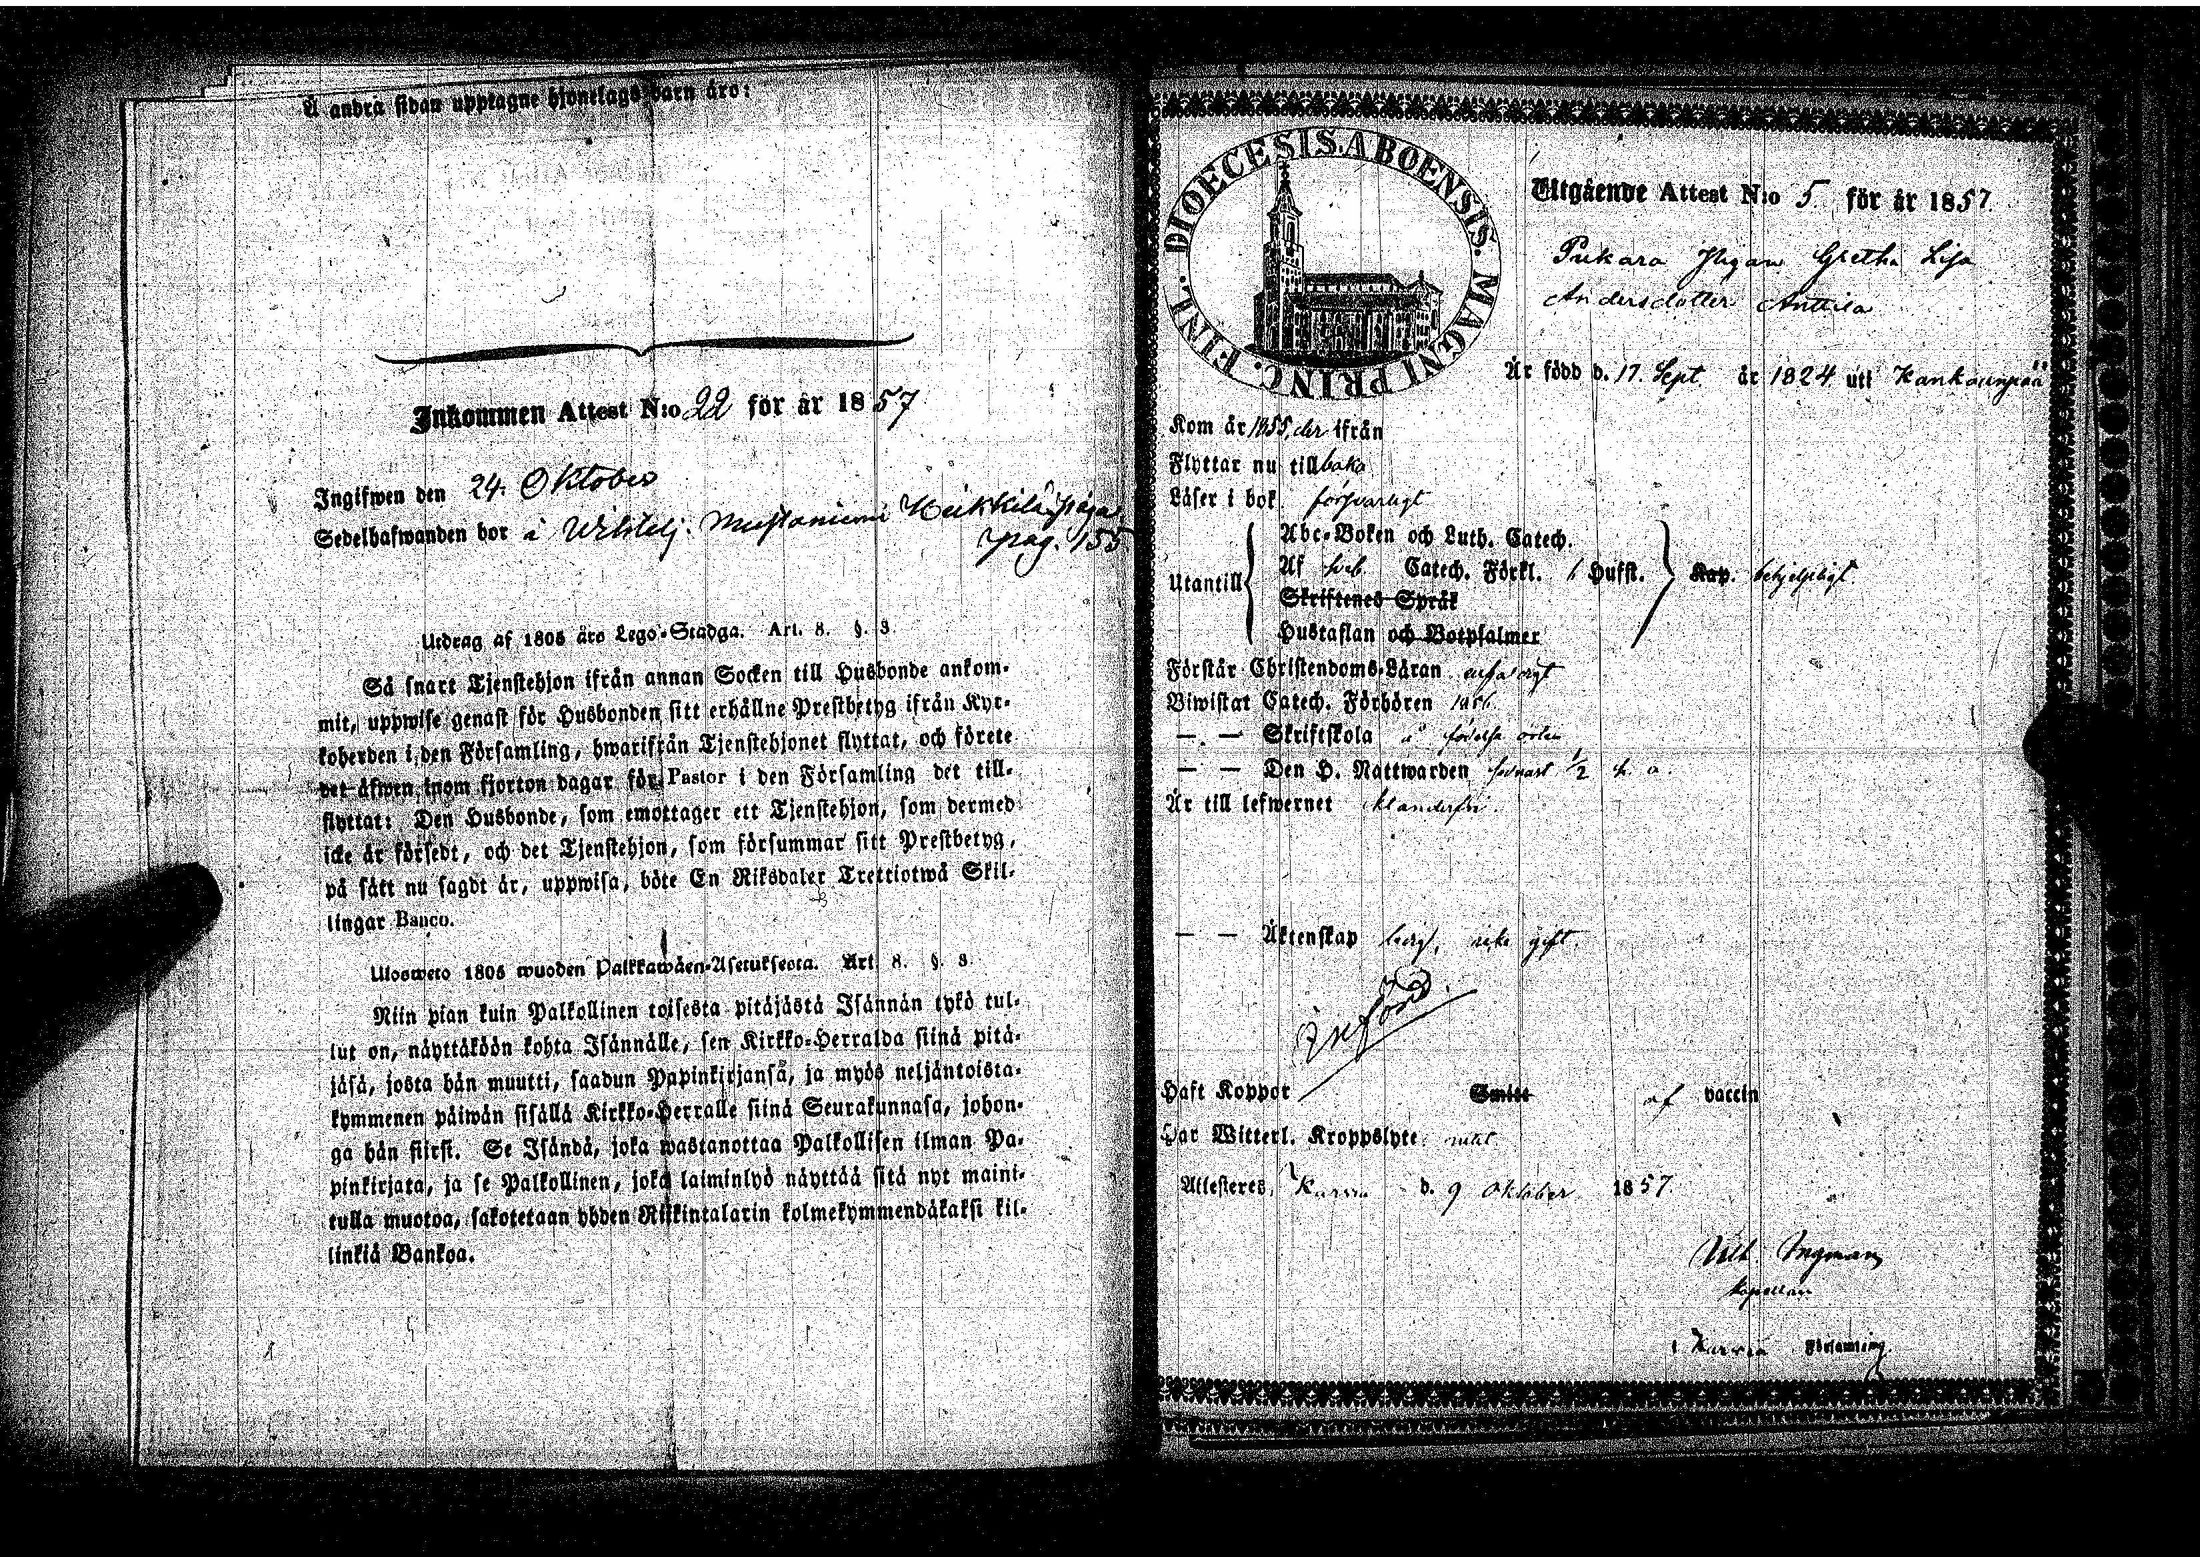 Å andra sidan upptagne hjonelags barn äro:
Inkommen Attest N:o 22 för år 1857
Ingifwen den 24. Oktober
Sedelhafwanden bor å Heikkilä
pag. 155
Utdrag af 1805 års Lego-Stadga. Art. 8. §. 3.
Så snart Tjenstehjon ifrån annan Socken till Husbonde ankom-
mit, uppwise genast för Husbonden sitt erhållne Prestbetyg ifrån Kyr-
koherden i den Församling, hwarifrån Tjenstehjonet flyttat, och förete
det äfwen inom fjorton dagar för Pastor i den Församling det till-
flyttat: Den Husbonde, som emottager ett Tjenstehjon, som dermed
icke är försedt, och det Tjenstehjon, som försummar sitt Prestbetyg,
på sätt nu sagdt är, uppwisa, böte En Riksdaler Trettiotwå Skil-
lingar Banco.
Ulosweto 1805 wuoden Palkkawäen-Asetuksesta. Art. 8. §. 3.
Niin pian kuin Palkollinen toisesta pitäjästä Isännän tykö tul-
lut on, näyttäköön kohta Isännälle, sen Kirkko-Herralda siinä pitä-
jäsä, josta hän muutti, saadun Papinkirjansa, ja myös neljäntoista-
kymmenen päiwän sisällä Kirkko-Herralle siinä Seurakunnasa, johon-
ga hän siirsi. Se Isändä, joka wastanottaa Palkollisen ilman Pa-
pinkirjata, ja se Palkollinen, joka laiminlyö näyttää sitä nyt maini-
tulla muotoa, sakotetaan yhden Riikintalarin kolmekymmendäkaksi kil-
linkiä Bankoa.
DIOECESIS. ABOENSIS. MAGNI PRINC. FINL.
Utgående Attest N:o 5 för år 1857
Pukara Pigan Gretha Lisa
Andersdotter Anttila
Är född d. 17. Sept år 1824 uti Kankaanpää
Kom år 1855 der ifrån
Flyttar nu till baka
Läser i bok försvarligt
Abc-Boken och Luth. Catech.
Utantill Af Sveb Catech. Förkl. Hufst. Kap. behjelpligt
Skriftenes Språk
Hustaflan och Botpsalmer
Förstår Christendoms-Läran enfaldigt
Biwistat Catech. Förhören 1856
— — Skriftskola å födelse orten
— — Den H. Nattwarden 1/2
Är till lefwernet klanderfri
— — Äktenskap ledig, icke gift.
Införd.
Haft Koppor Smitt af vaccin
Har Witterl. Kroppslyte intet
Attesteres, Karvia d. 9 Oktober 1857.
Vilh. Ingman
Kapellan
i Karvia Församling.